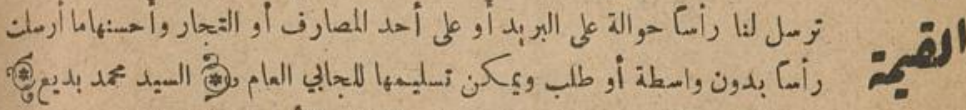 القيمة
ترسل لنا رأساً حوالة على البريد أو على أحد المصارف أو التجار وأحسنها ما أرسلت
رأساً بدون واسطة أو طلب ويمكن تسليمها للجابي العام السيد محمد بديع